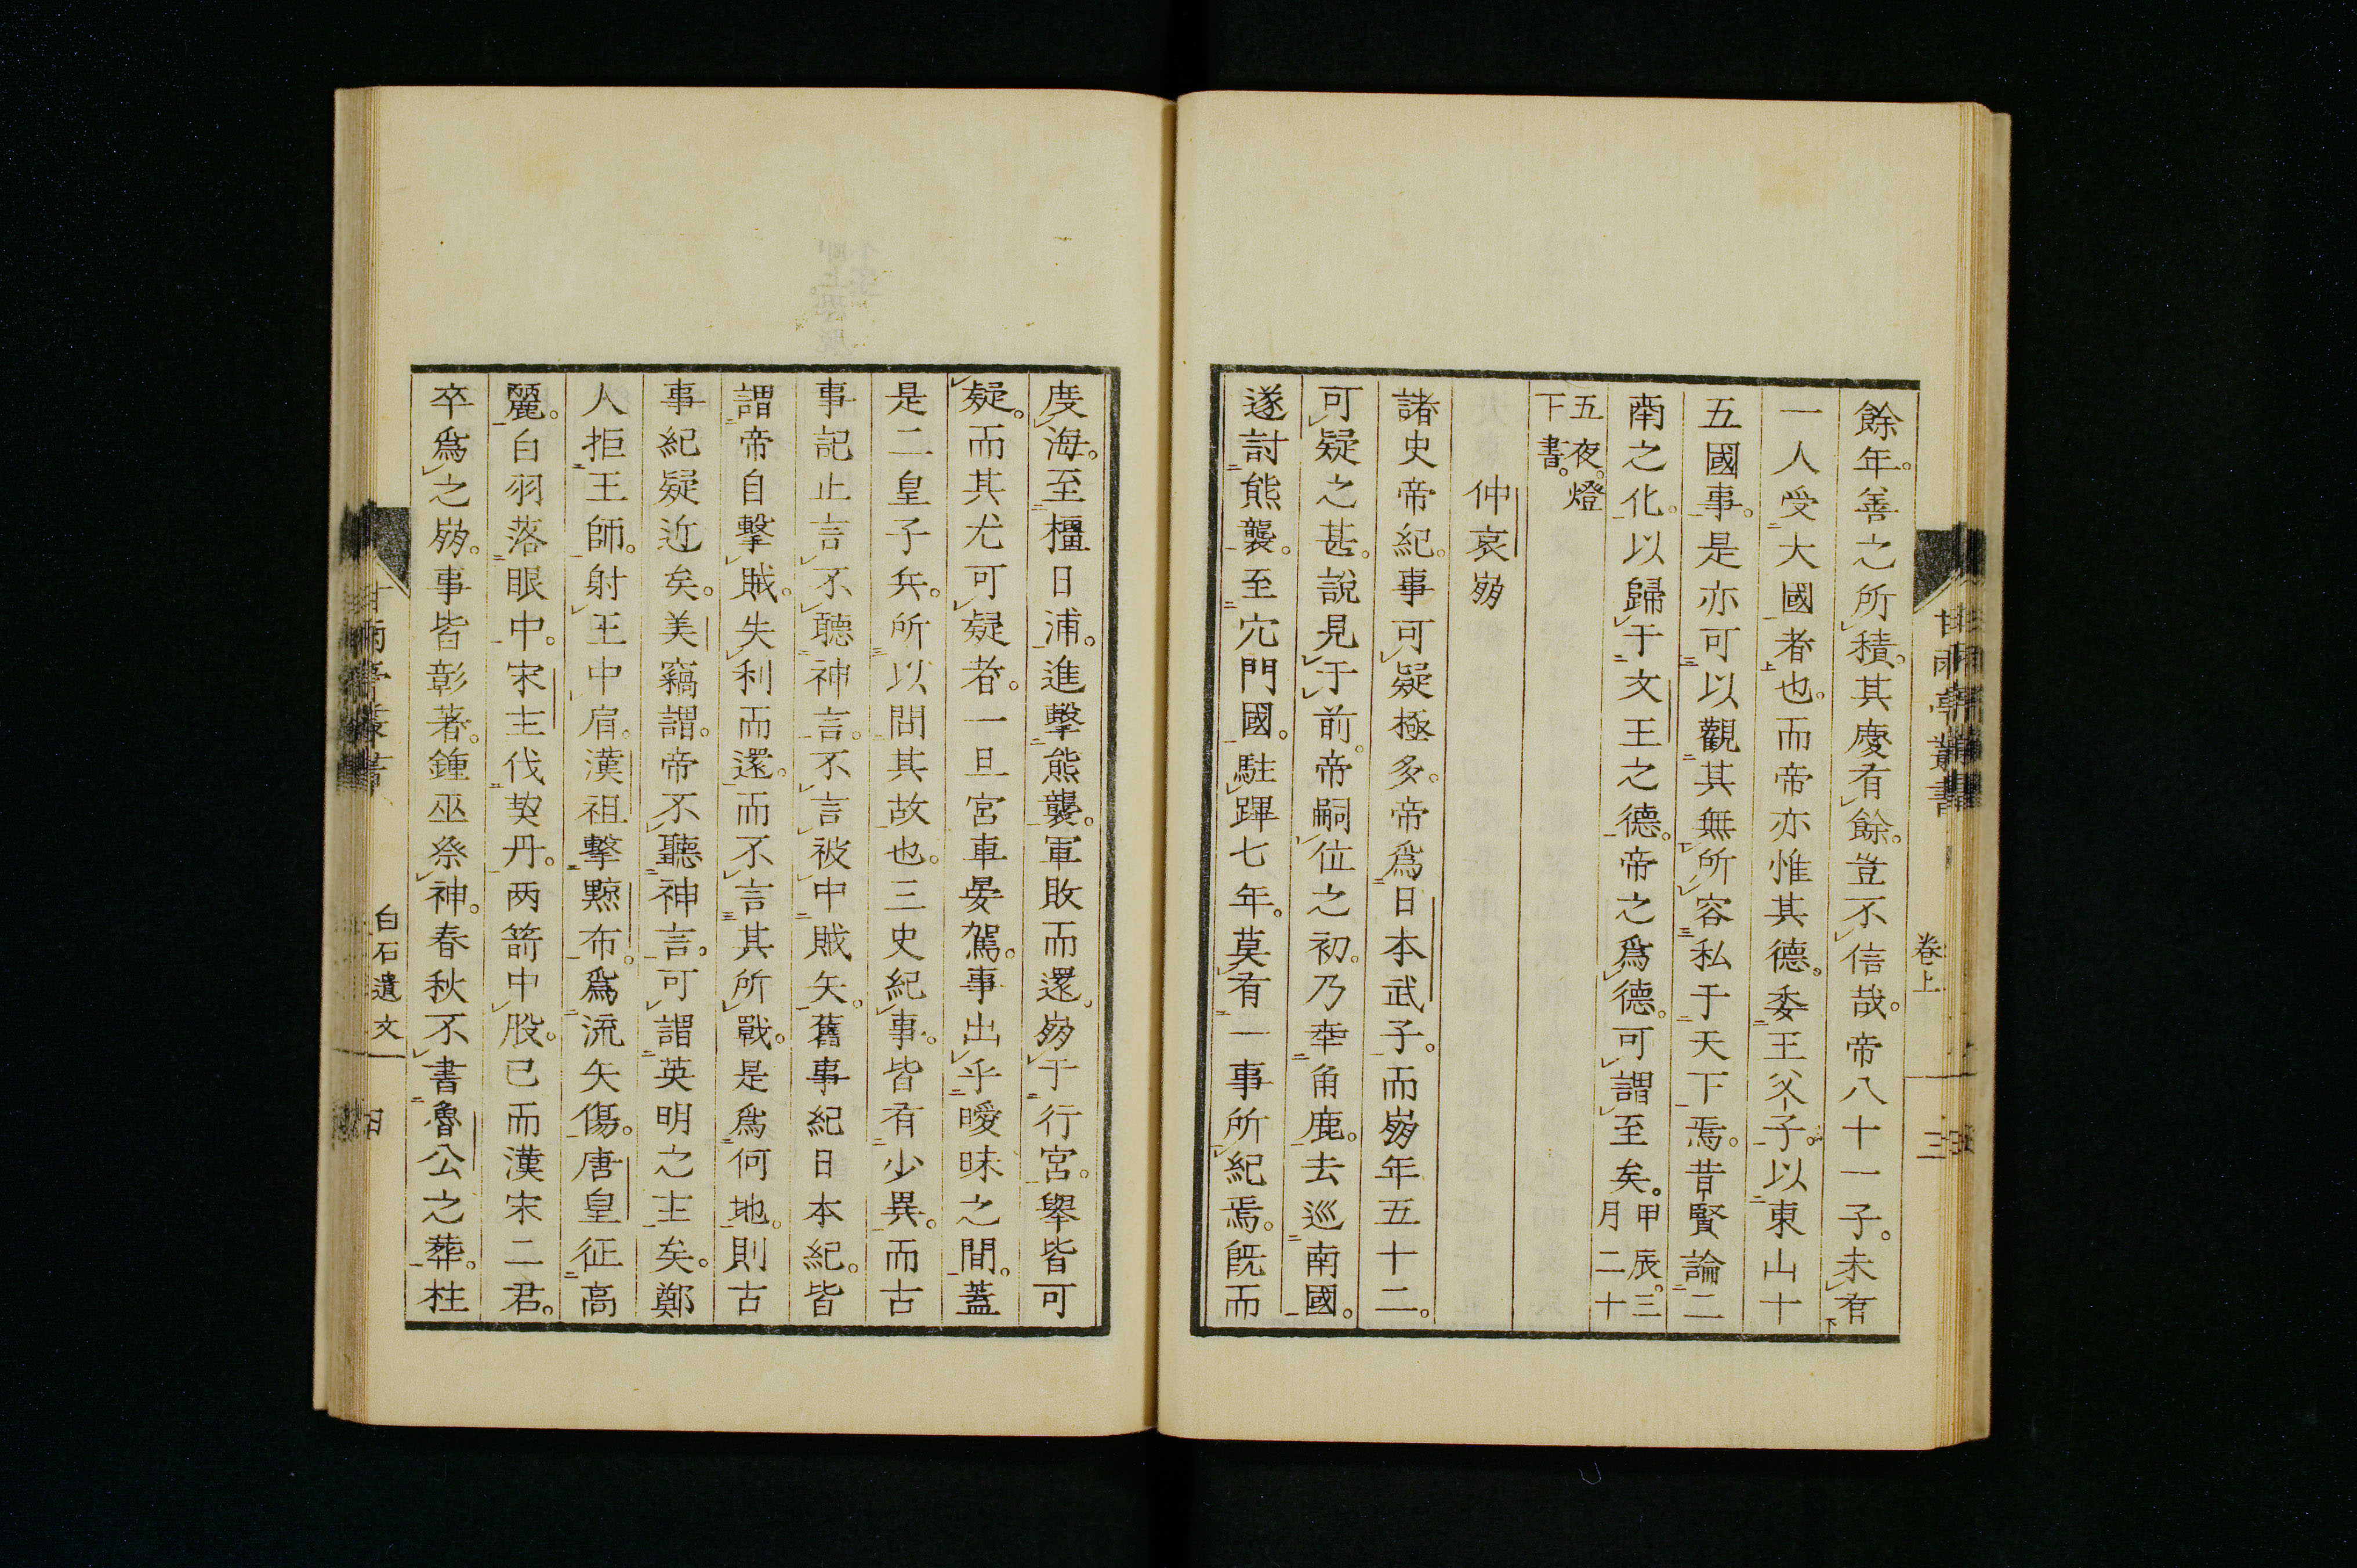 餘年。善之所積。其慶有餘。豈不信哉。帝八十一子。未有
一人受大國者也。而帝亦惟其德。委王父子。以東山十
五國事。是亦可以觀其無所容私于天下焉。昔賢論二
南之化。以歸于文王之德。帝之爲德。可謂至矣。甲辰。三月二十
五夜。燈下書。
仲哀崩
諸史帝紀。事可疑極多。帝爲日本武子。而崩年五十二。
可疑之甚。說見于前。帝嗣位之初。乃幸角鹿。去巡南國。
遂討熊襲。至穴門國。駐蹕七年。莫有一事所紀焉。旣而
度海。至橿日浦。進擊熊襲。軍敗而還。崩于行宮。舉皆可
疑。而其尤可疑者。一旦宮車晏駕。事出乎曖昧之間。蓋
是二皇子兵。所以問其故也。三史紀事。皆有少異。而古
事記止言不聽神言。不言被中賊矢。舊事紀日本紀。皆
謂帝自擊賊。失利而還。而不言其所戰。是爲何地。則古
事紀疑近矣。美竊謂。帝不聽神言。可謂英明之主矣。鄭
人拒王師。射王中肩。漢祖擊黥布。爲流矢傷。唐皇征高
麗。白羽落眼中。宋主伐契丹。两箭中股。已而漢宋二君。
卒爲之崩。事皆彰著。鍾巫祭神。春秋不書魯公之葬。柱
甘雨亭叢書
卷上
三
白石遺文
四